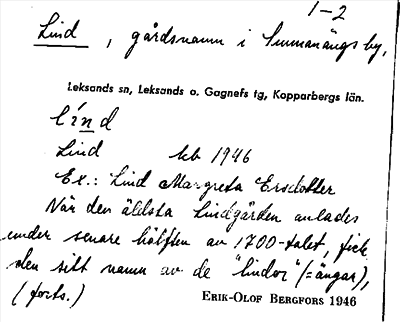 1-2
Lind, gårdsnamn i Sunnanängs by,
Leksands sn, Leksands o. Gagnefs tg, Kopparbergs län.
lind
Lind kb 1946
Ex.: Lind Margreta Ersdotter
När den äldsta Lindgården anlades
under senare hälften av 1700-talet, fick
den sitt namn av de "lindor" (= ängar),
(forts.) ERIK-OLOF BERGFORS 1946